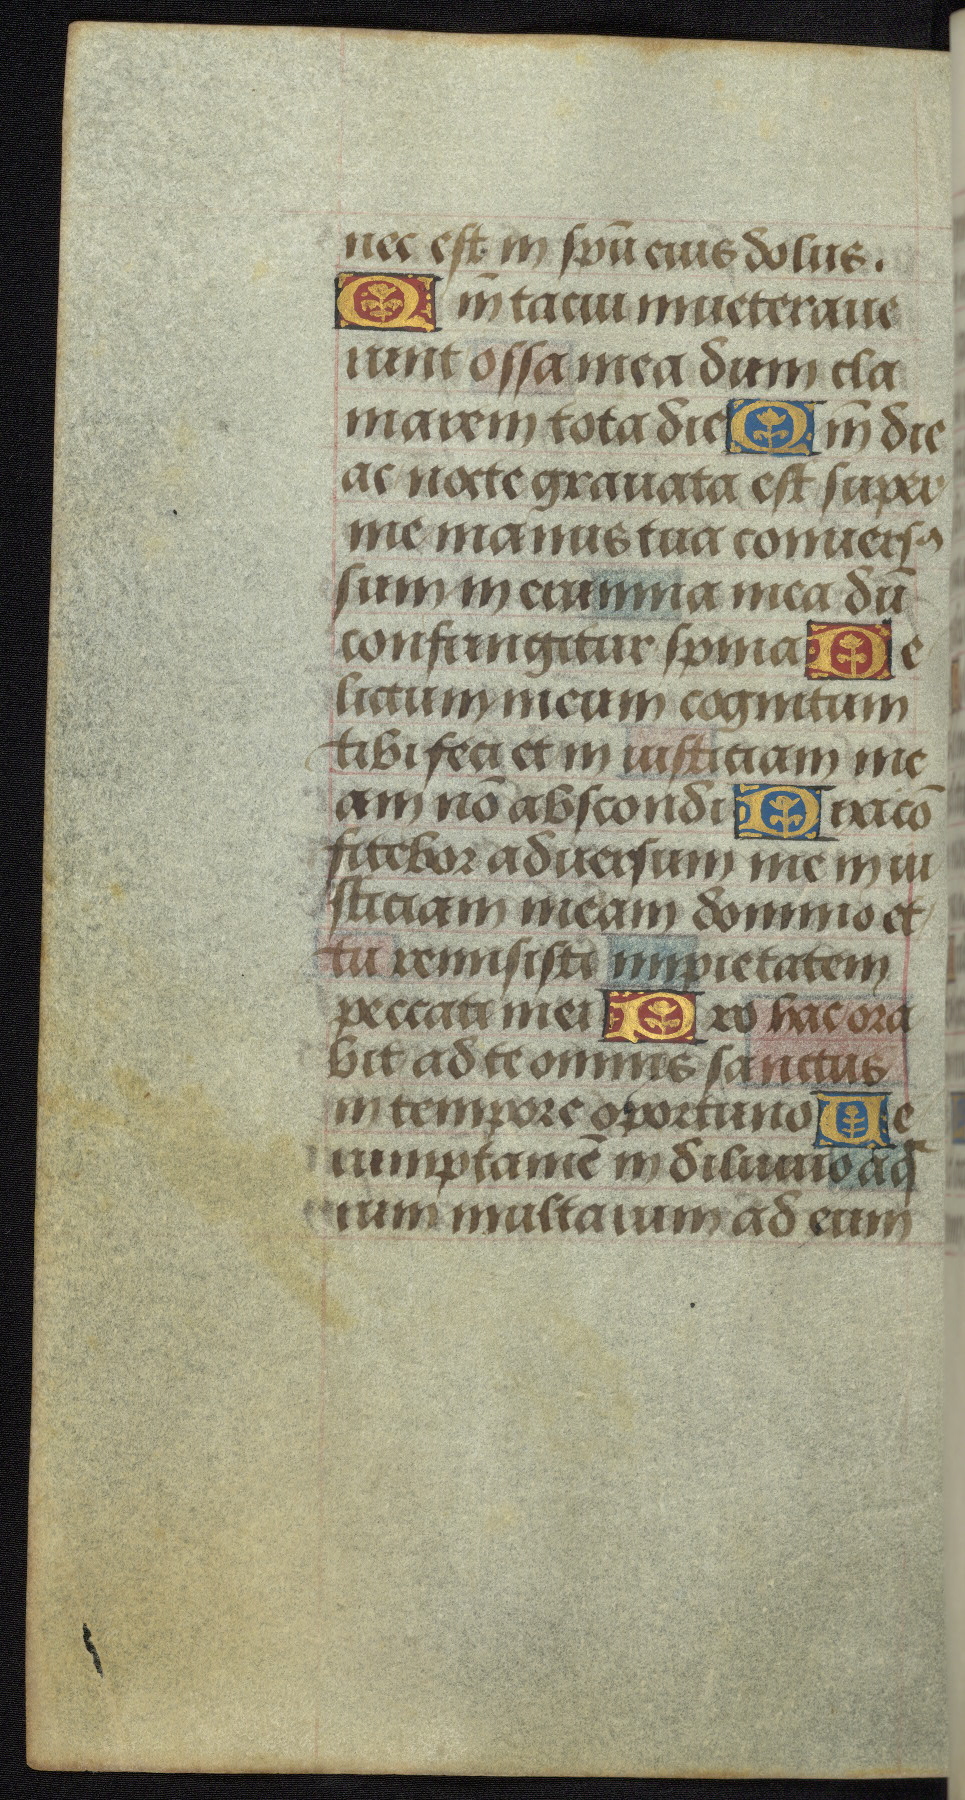 nec est in spū eius dolus.
Qm̄ tacui inueteraue
runt ossa mea dum cla
marem tota die Qm̄ die
ac nocte grauata est super
me manus tua conuersꝰ
sum in erumna mea dū
configitur spina De
lictum meum cognitum
tibi feci et in iusticiam me
am nō abscondi Dixi cō
fitebor aduersum me in iu
sticiam meam domino et
tu remisisti impietatem
peccati mei Pro hac ora
bit ad te omnis sanctus
in tempore oportuno Ue
rumptamē in diluuio aq̄
rum multarum ad eum